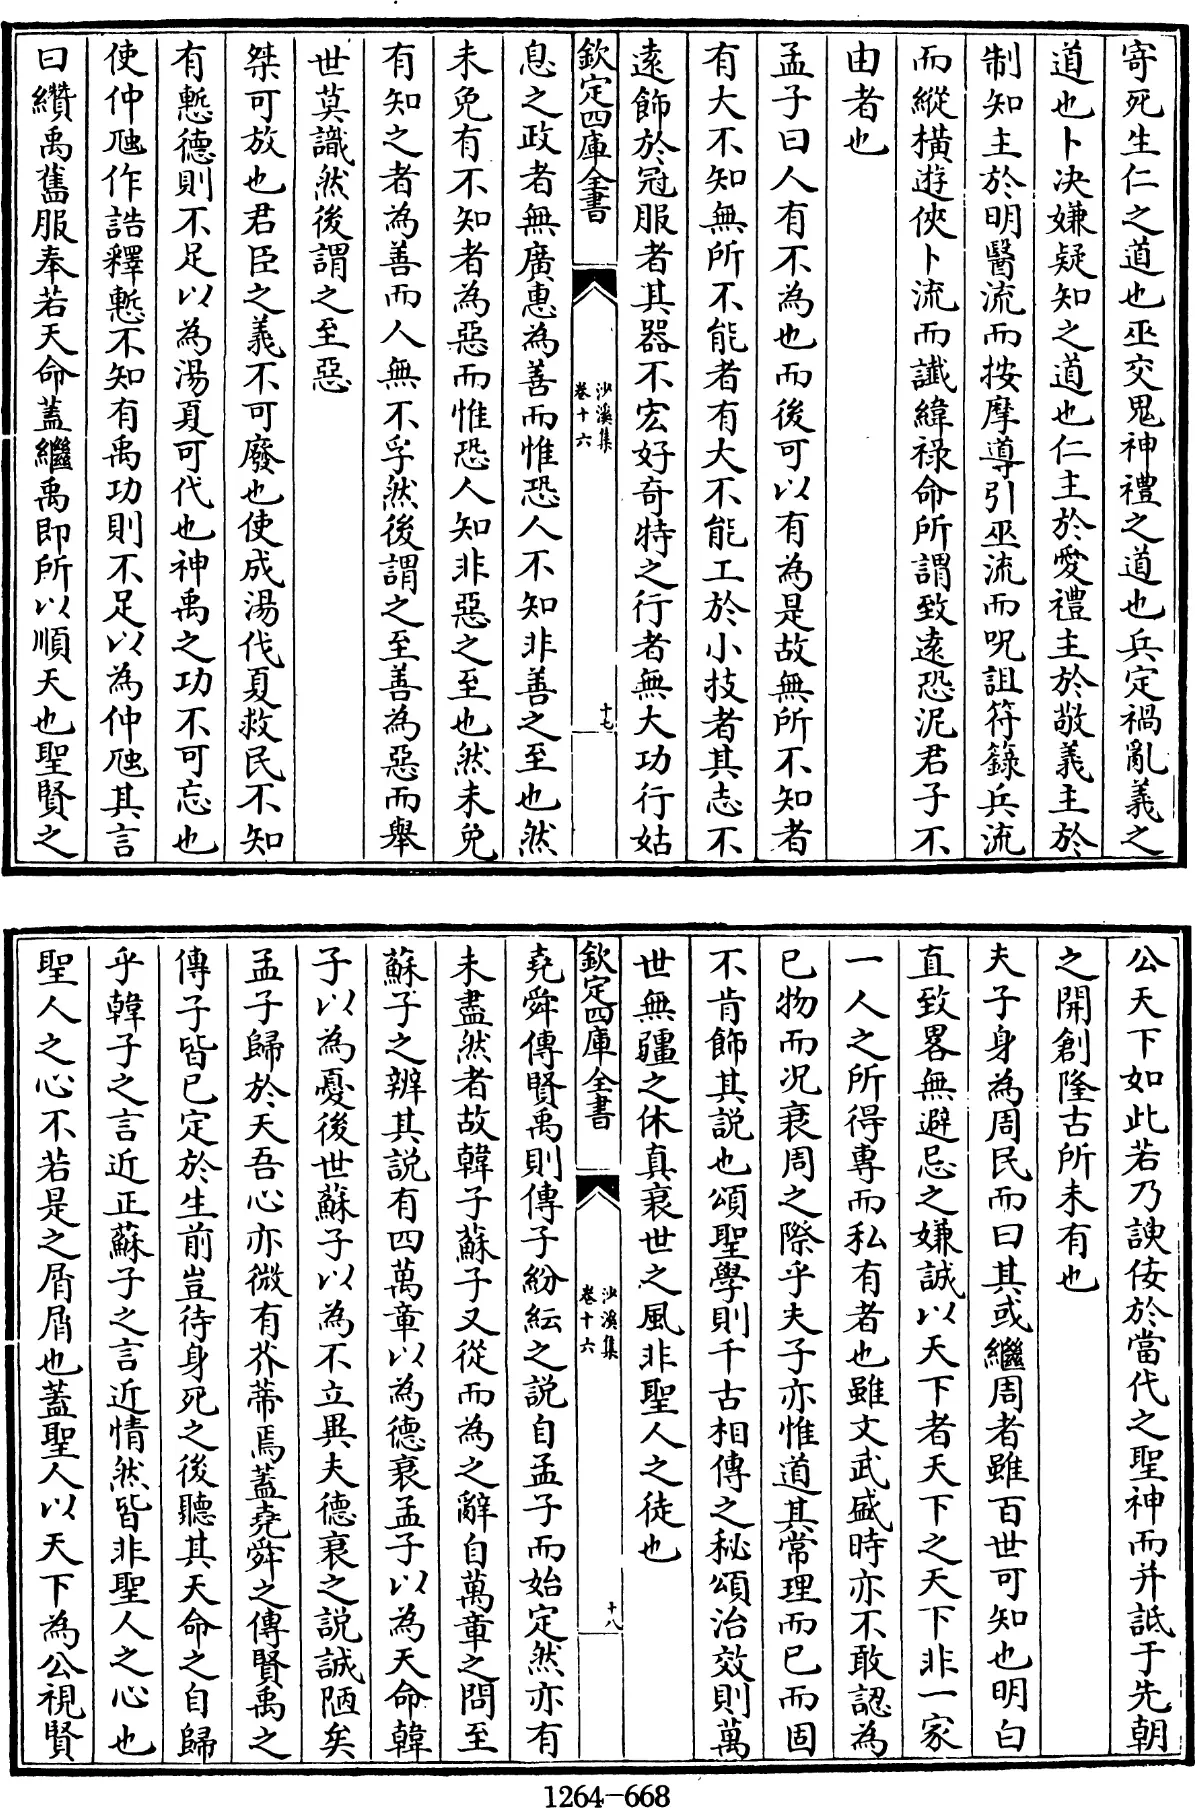 寄死生仁之道也巫交鬼神禮之道也兵定禍亂義之
道也卜决嫌疑知之道也仁主於愛禮主於敬義主於
制知主於明醫流而按摩導引巫流而呪詛符籙兵流
而縱横遊俠卜流而讖緯祿命所謂致遠恐泥君子不
由者也
孟子曰人有不為也而後可以有為是故無所不知者
有大不知無所不能者有大不能工於小技者其志不
遠飾於冠服者其器不宏好奇特之行者無大功行姑
欽定四庫全書
沙溪集
卷十六
十七
息之政者無廣惠為善而惟恐人不知非善之至也然
未免有不知者為惡而惟恐人知非惡之至也然未免
有知之者為善而人無不孚然後謂之至善為惡而舉
世莫識然後謂之至惡
桀可放也君臣之義不可廢也使成湯伐夏救民不知
有慙德則不足以為湯夏可代也神禹之功不可忘也
使仲虺作誥釋慙不知有禹功則不足以為仲虺其言
曰纘禹舊服奉若天命蓋繼禹即所以順天也聖賢之
公天下如此若乃諛佞於當代之聖神而并詆于先朝
之開創隆古所未有也
夫子身為周民而曰其或繼周者雖百世可知也明白
直致畧無避忌之嫌誠以天下者天下之天下非一家
一人之所得專而私有者也雖文武盛時亦不敢認為
已物而况衰周之際乎夫子亦惟道其常理而已而固
不肯飾其説也頌聖學則千古相傳之秘頌治效則萬
世無疆之休真衰世之風非聖人之徒也
欽定四庫全書
沙溪集
卷十六
十八
堯舜傳賢禹則傳子紛紜之説自孟子而始定然亦有
未盡然者故韓子蘇子又從而為之辭自萬章之問至
蘇子之辨其説有四萬章以為德衰孟子以為天命韓
子以為憂後世蘇子以為不立異夫德衰之説誠陋矣
孟子歸於天吾心亦微有芥蒂焉蓋堯舜之傳賢禹之
傳子皆已定於生前豈待身死之後聽其天命之自歸
乎韓子之言近正蘇子之言近情然皆非聖人之心也
聖人之心不若是之屑屑也蓋聖人以天下為公視賢
1264-668